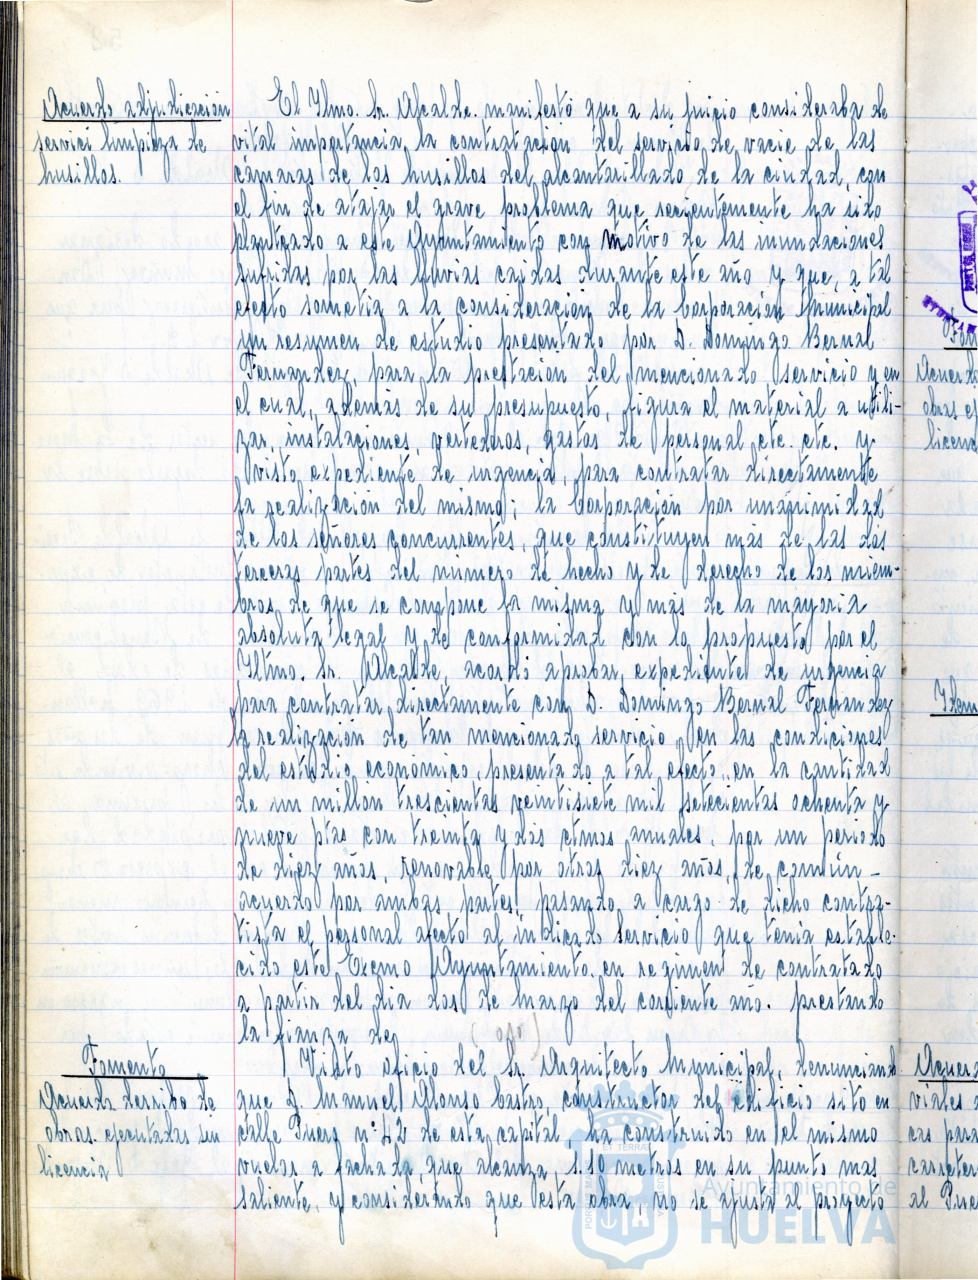 Acuerdo adjudicación
servici limpieza de
husillos.
El Ilmo. Sr. Alcalde manifestó que a su juicio consideraba de
vital importancia, la contratación del servicio de vacie de las
cámaras de los husillos del alcantarillado de la ciudad, con
el fin de atajar el grave problema que recientemente ha sido
planteado a este Ayuntamiento con motivo de las inundaciones
sufridas por las lluvias caidas durante este año y que, a tal
efecto sometia a la consideración de la Corporación Municipal
un resumen de estudio presentado por D. Domingo Bernal
Fernandez, para la prestación del mencionado servicio y en
el cual, además de su presupuesto, figura el material a utili-
zar, instalaciones, vertederos, gastos de personal etc. etc. y
visto expediente de urgencia, para contratar directamente
la realización del mismo; la Corporación por unanimidad
de los señores concurrentes, que constituyen más de las dos
terceras partes del número de hecho y de derecho de los miem-
bros de que se compone la misma y más de la mayoria
absoluta legal y de conformidad con lo propuesto por el
Iltmo. Sr. Alcalde, acordó aprobar expediente de urgencia
para contratar directamente con D. Domingo Bernal Fernandez
la realización de tan mencionado servicio en las condiciones
del estudio económico, presentado a tal efecto, en la cantidad
de un millón trescientas veintisiete mil setecientas ochenta y
nueve ptas con treinta y dos ctmos anuales, por un periodo
de diez años, renovable por otros diez años, de común -
acuerdo por ambas partes, pasando a cargo de dicho contra-
tista el personal afecto al indicado servicio que tenia estable-
cido este Excmo Ayuntamiento, en regimen de contratado
a partir del dia dos de Marzo del corriente año. prestando
la fianza de
(ojo)
Fomento
Acuerdo derribo de
obras ejecutadas sin
licencia
Visto oficio del Sr. Arquitecto Municipal, denunciando
que D. Manuel Alonso Castro, constructor del edificio sito en
calle Puerz nº 42 de esta capital ha construido en el mismo
vuelos a fachada, que alcanza 1.10 metros en su punto mas
saliente, y considerando que esta obra, no se ajusta al proyecto
Acuerdo
obras
licenc
Idem
Acuerdo
viales
cas para
carreter
al Puer
Ayuntamiento de
HUELVA